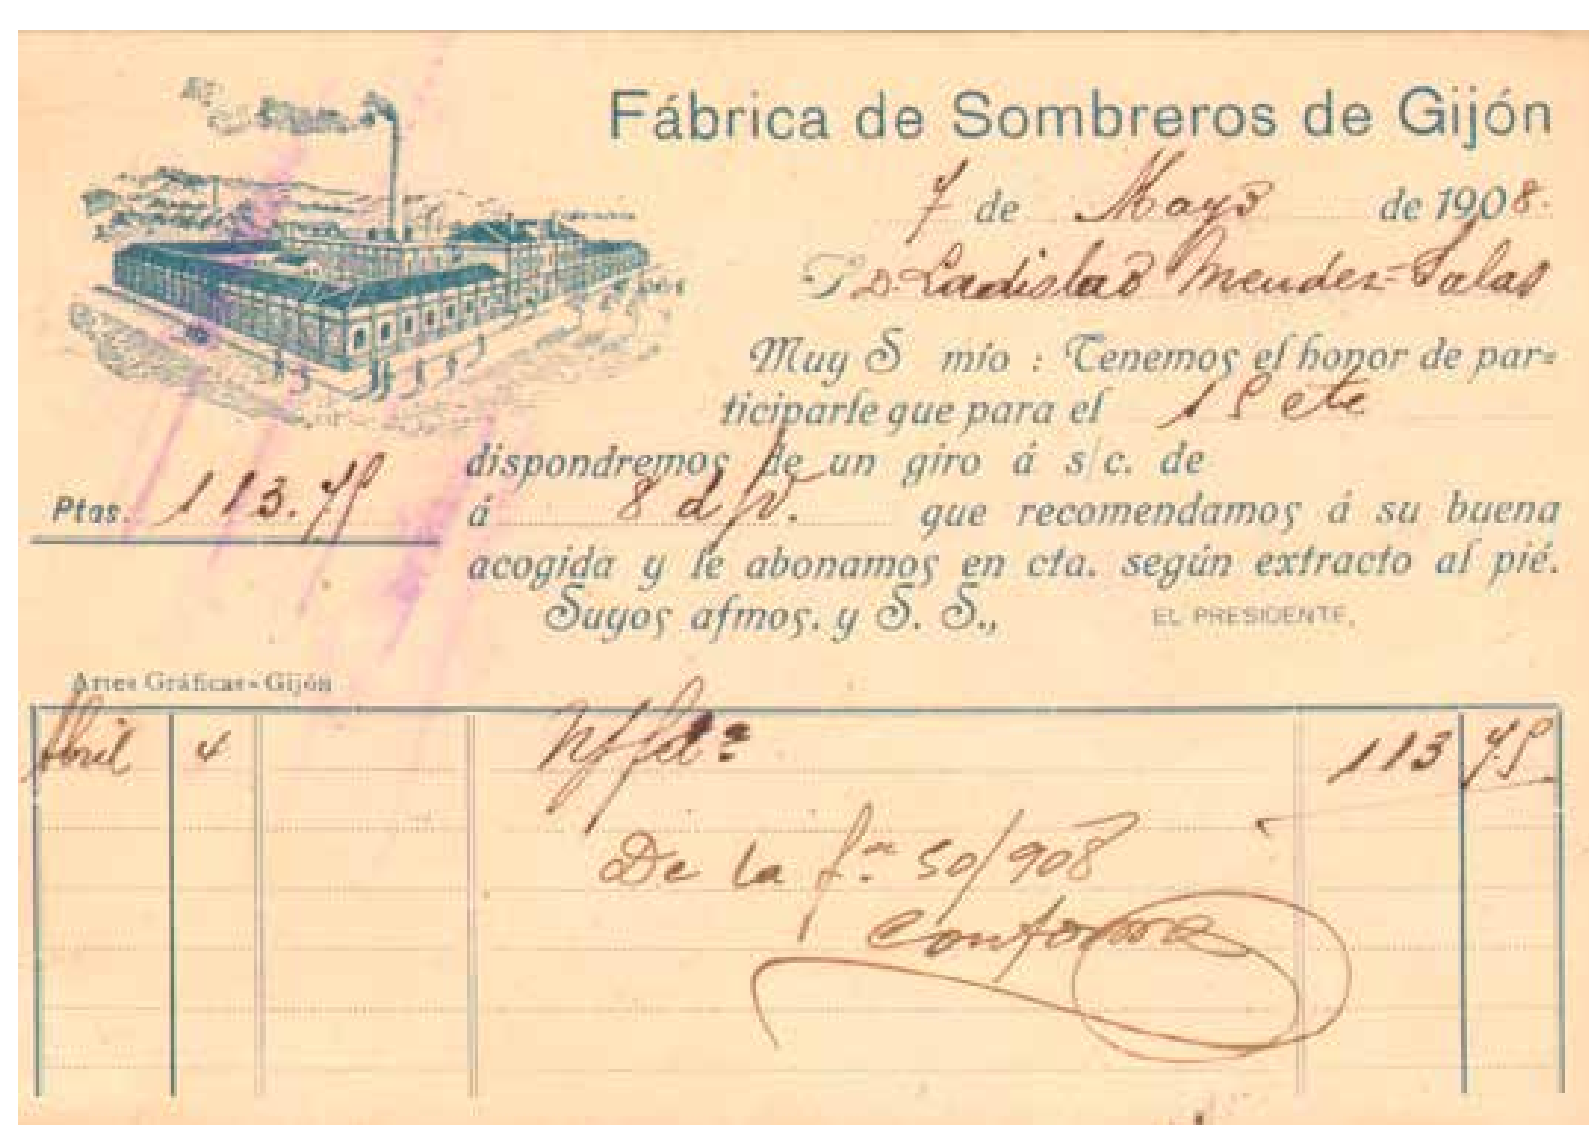 Fábrica de Sombreros de Gijón
7 de Mayo de 1908.
S D. Ladislao Mendez-Salas
Muy S mío : Tenemos el honor de par=
ticiparle que para el 15 cte
dispondremos de un giro á s/c. de
Ptas. 113.75 á 8 d/v. que recomendamos á su buena
acogida y le abonamos en cta. según extracto al pié.
Suyos afmos. y S. S.,
EL PRESIDENTE,
Artes Gráficas - Gijón
Abril 4 N/ fra 113 75
De la fª 50/908
Conforme